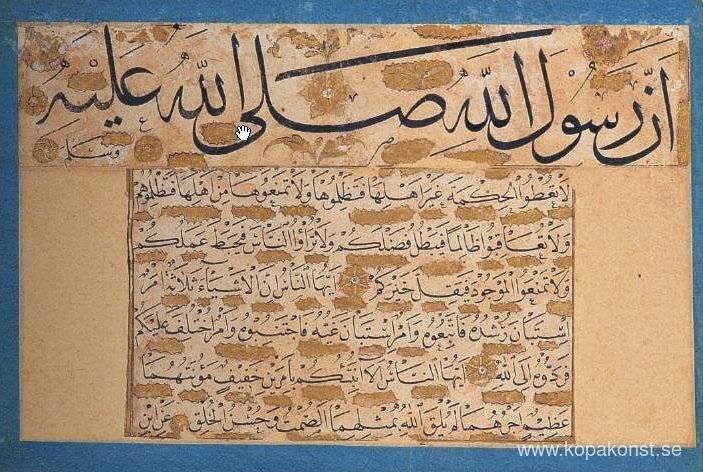 اَنَّ رَسُولَ اللّٰهِ صَلَى اللّٰهُ عَلَيْهِ
وَسَلَّمَ
لَا تُعْطُوا الْحِكْمَةَ غَيْرَ اَهْلِهَا فَتَظْلِمُوهَا وَلَا تَمْنَعُوهَا مِنْ اَهْلِهَا فَتَظْلِمُوهُمْ
وَلَا تُعَاقِبُوا ظَالِمًا فَيَبْطُلَ فَضْلُكُمْ وَلَا تُرَاؤُا النَّاسَ فَيُحْبَطَ عَمَلُكُمْ
وَلَا تَمْنَعُوا الْمَوْجُودَ فَيَقِلَّ خَيْرُكُمْ اَيُّهَا النَّاسُ اِنَّ الْاَشْيَاءَ ثَلَاثَةٌ اَمْرٌ
اسْتَبَانَ رُشْدُهُ فَاتَّبِعُوهُ وَاَمْرٌ اسْتَبَانَ غَيُّهُ فَاجْتَنِبُوهُ وَاَمْرٌ اخْتُلِفَ عَلَيْكُمْ
فَرُدُّوهُ اِلَى اللّٰهِ اَيُّهَا النَّاسُ اَلَا اُنَبِّئُكُمْ بِاَمْرَيْنِ خَفِيفٍ مَؤُنَتُهُمَا
عَظِيمٍ اَجْرُهُمَا لَمْ يُلْقَ اللّٰهُ بِمِثْلِهِمَا الصَّمْتُ وَحُسْنُ الْخُلُقِ عَنِ ابْنِ
www.kopakonst.se